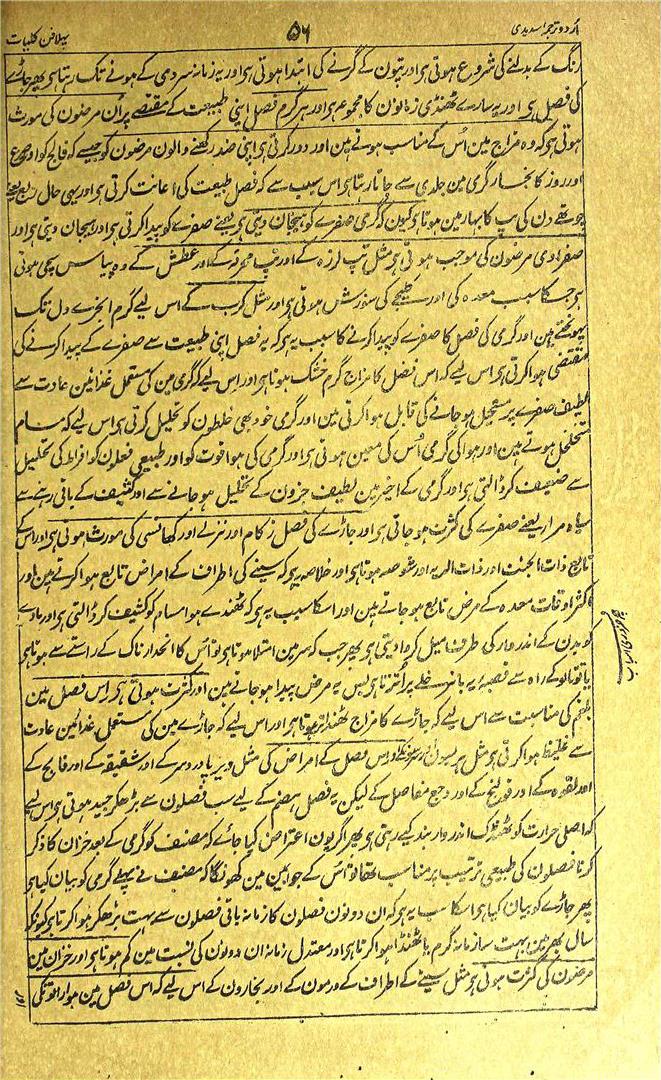 پہلا فن کلیات ۵۶ اُردو ترجمہ اسدیدی
رنگ کے بدلنے کی شروع ہوتی ہی اور پتون کے گرنے کی ابتدا ہوتی ہی اور یہ زمانہ سردی کے ہونے تک رہتا ہی پھر جاڑے
کی فصل ہی اور یہ سارے ٹھنڈی زمانون کا مجموعہ ہی اور ہر گرم فصل اپنی طبیعت کے مقتضے پر اُن مرضون کی مورث
ہوتی ہی کہ وہ مزاج مین اُس کے مناسب ہوتے ہین اور دور کرتی ہی اپنی ضد رکھنے والون مرضون کو جیسے کہ فالج کو اور
اور روز کا بخار گرمی مین جلدی سے جاتا رہتا ہی اس سبب سے کہ فصل طبیعت کی اعانت کرتی ہی اور یہی حال ربع یعنے
چوتھے دن کی تپ کا بہار مین ہوتا ہی کیون کہ گرمی صفرے کو ہیجان دیتی ہی یعنے صفرے کو پیدا کرتی ہی اور ہیجان دیتی ہی اور
صفراوی مرضون کی موجب ہوتی ہی مثل تپ لرزہ کے اور تپ محرقہ کے اور عطش کے وہ پیاس سچی ہوتی
ہی جسکا سبب معدہ کی اور کلیجے کی سوزش ہوتی ہی اور مثل کرب کے اس لیے گرم ابخرے دل تک
پہونچتے ہین اور گرمی کی فصل کا صفرے کو پیدا کرنے کا سبب یہ ہی کہ یہ فصل اپنی طبیعت سے صفرے کے پیدا کرنے کی
مقتضی ہوا کرتی ہی اس لیے کہ اس فصل کا مزاج گرم خشک ہوتا ہی اور اس لیے کہ گرمی مین کی مستعمل غذائین عادت سے
لطیف صفرے پر مستحیل ہو جانے کی قابل ہوا کرتی ہین اور گرمی خود بھی خلطون کو تحلیل کرتی ہی اس لیے کہ مسام
متخلخل ہوتے ہین اور ہوا کی گرمی اُس کی معین ہوتی ہی اور گرمی کی ہوا قوت کو اور طبیعی فعلون کو افراط کی تحلیل
سے ضعیف کر ڈالتی ہی اور گرمی کے اخیر مین لطیف جزون کے تحلیل ہو جانے سے اور کثیف کے باقی رہنے سے
سیاہ مرار یعنے صفرے کی کثرت ہو جاتی ہی اور جاڑے کی فصل زکام اور نزلے اور کھانسی کی مورث ہوتی ہی اور اس کے
تابع ذات الجنب اور ذات الریہ اور شوصہ ہوتا ہی اور خلاصہ یہ ہی کہ سینے کی اطراف کے امراض تابع ہوا کرتے ہین اور
اکثر اوقات معدہ کے مرض تابع ہو جاتے ہین اور اسکا سبب یہ ہی کہ ٹھنڈے ہوا مسام کو کثیف کر ڈالتی ہی اور مادے
کو بدن کے اندر وار کی طرف میل کروا دیتی ہی پھر جب کہ سر مین امتلا ہوتا ہی تو اُس کا انحدار ناک کے راستے سے ہوتا ہی
یا تو تالو کے راہ سے قصبۂ ریہ یا نرخرے پر اُترتا ہی بس یہ مرض پیدا ہو جاتے ہین اور کثرت ہوتی ہی اس فصل مین
بلغم کی مناسبت سے اس لیے کہ جاڑے کا مزاج ٹھنڈا تر ہوتا ہی اور اس لیے کہ جاڑے مین کی مستعمل غذائین عادت
سے غلیظ ہوا کرتی ہی مثل ہریسون اور اس فصل کے امراض کی مثل دیرپا درد سر کے اور شقیقہ کے اور فالج کے
اور لقوہ کے اور قولنج کے اور وجع مفاصل کے لیکن یہ فصل ہضم کے لیے سب فصلون سے بڑھکر جید ہوتی ہی اس لیے
کہ اصلی حرارت کو ٹھنڈک اندر وار بند کیے رہتی ہی پھر اگر یون اعتراض کیا جائے کہ مصنف کو گرمی کے بعد خزان کا ذکر
کرنا فصلون کی طبیعی ترتیب پر مناسب تھا تو اُس کے جواب مین مین کہونگا کہ مصنف نے پہلے گرمی کو بیان کیا ہی
پھر جاڑے کو بیان کیا ہی اسکا سبب یہ ہی کہ ان دونون فصلون کا زمانہ باقی فصلون سے بہت بڑھکر ہوا کرتا ہی کیونکہ
سال بھر مین بہت سا زمانہ گرم یا ٹھنڈا ہوا کرتا ہی اور معتدل زمانہ ان دونون کی نسبت مین کم ہوتا ہی اور خزان مین
مرضون کی کثرت ہوتی ہی مثل سینے کے اطراف کے ورمون کے اور بخارون کے اس لیے کہ اس فصل مین ہوا